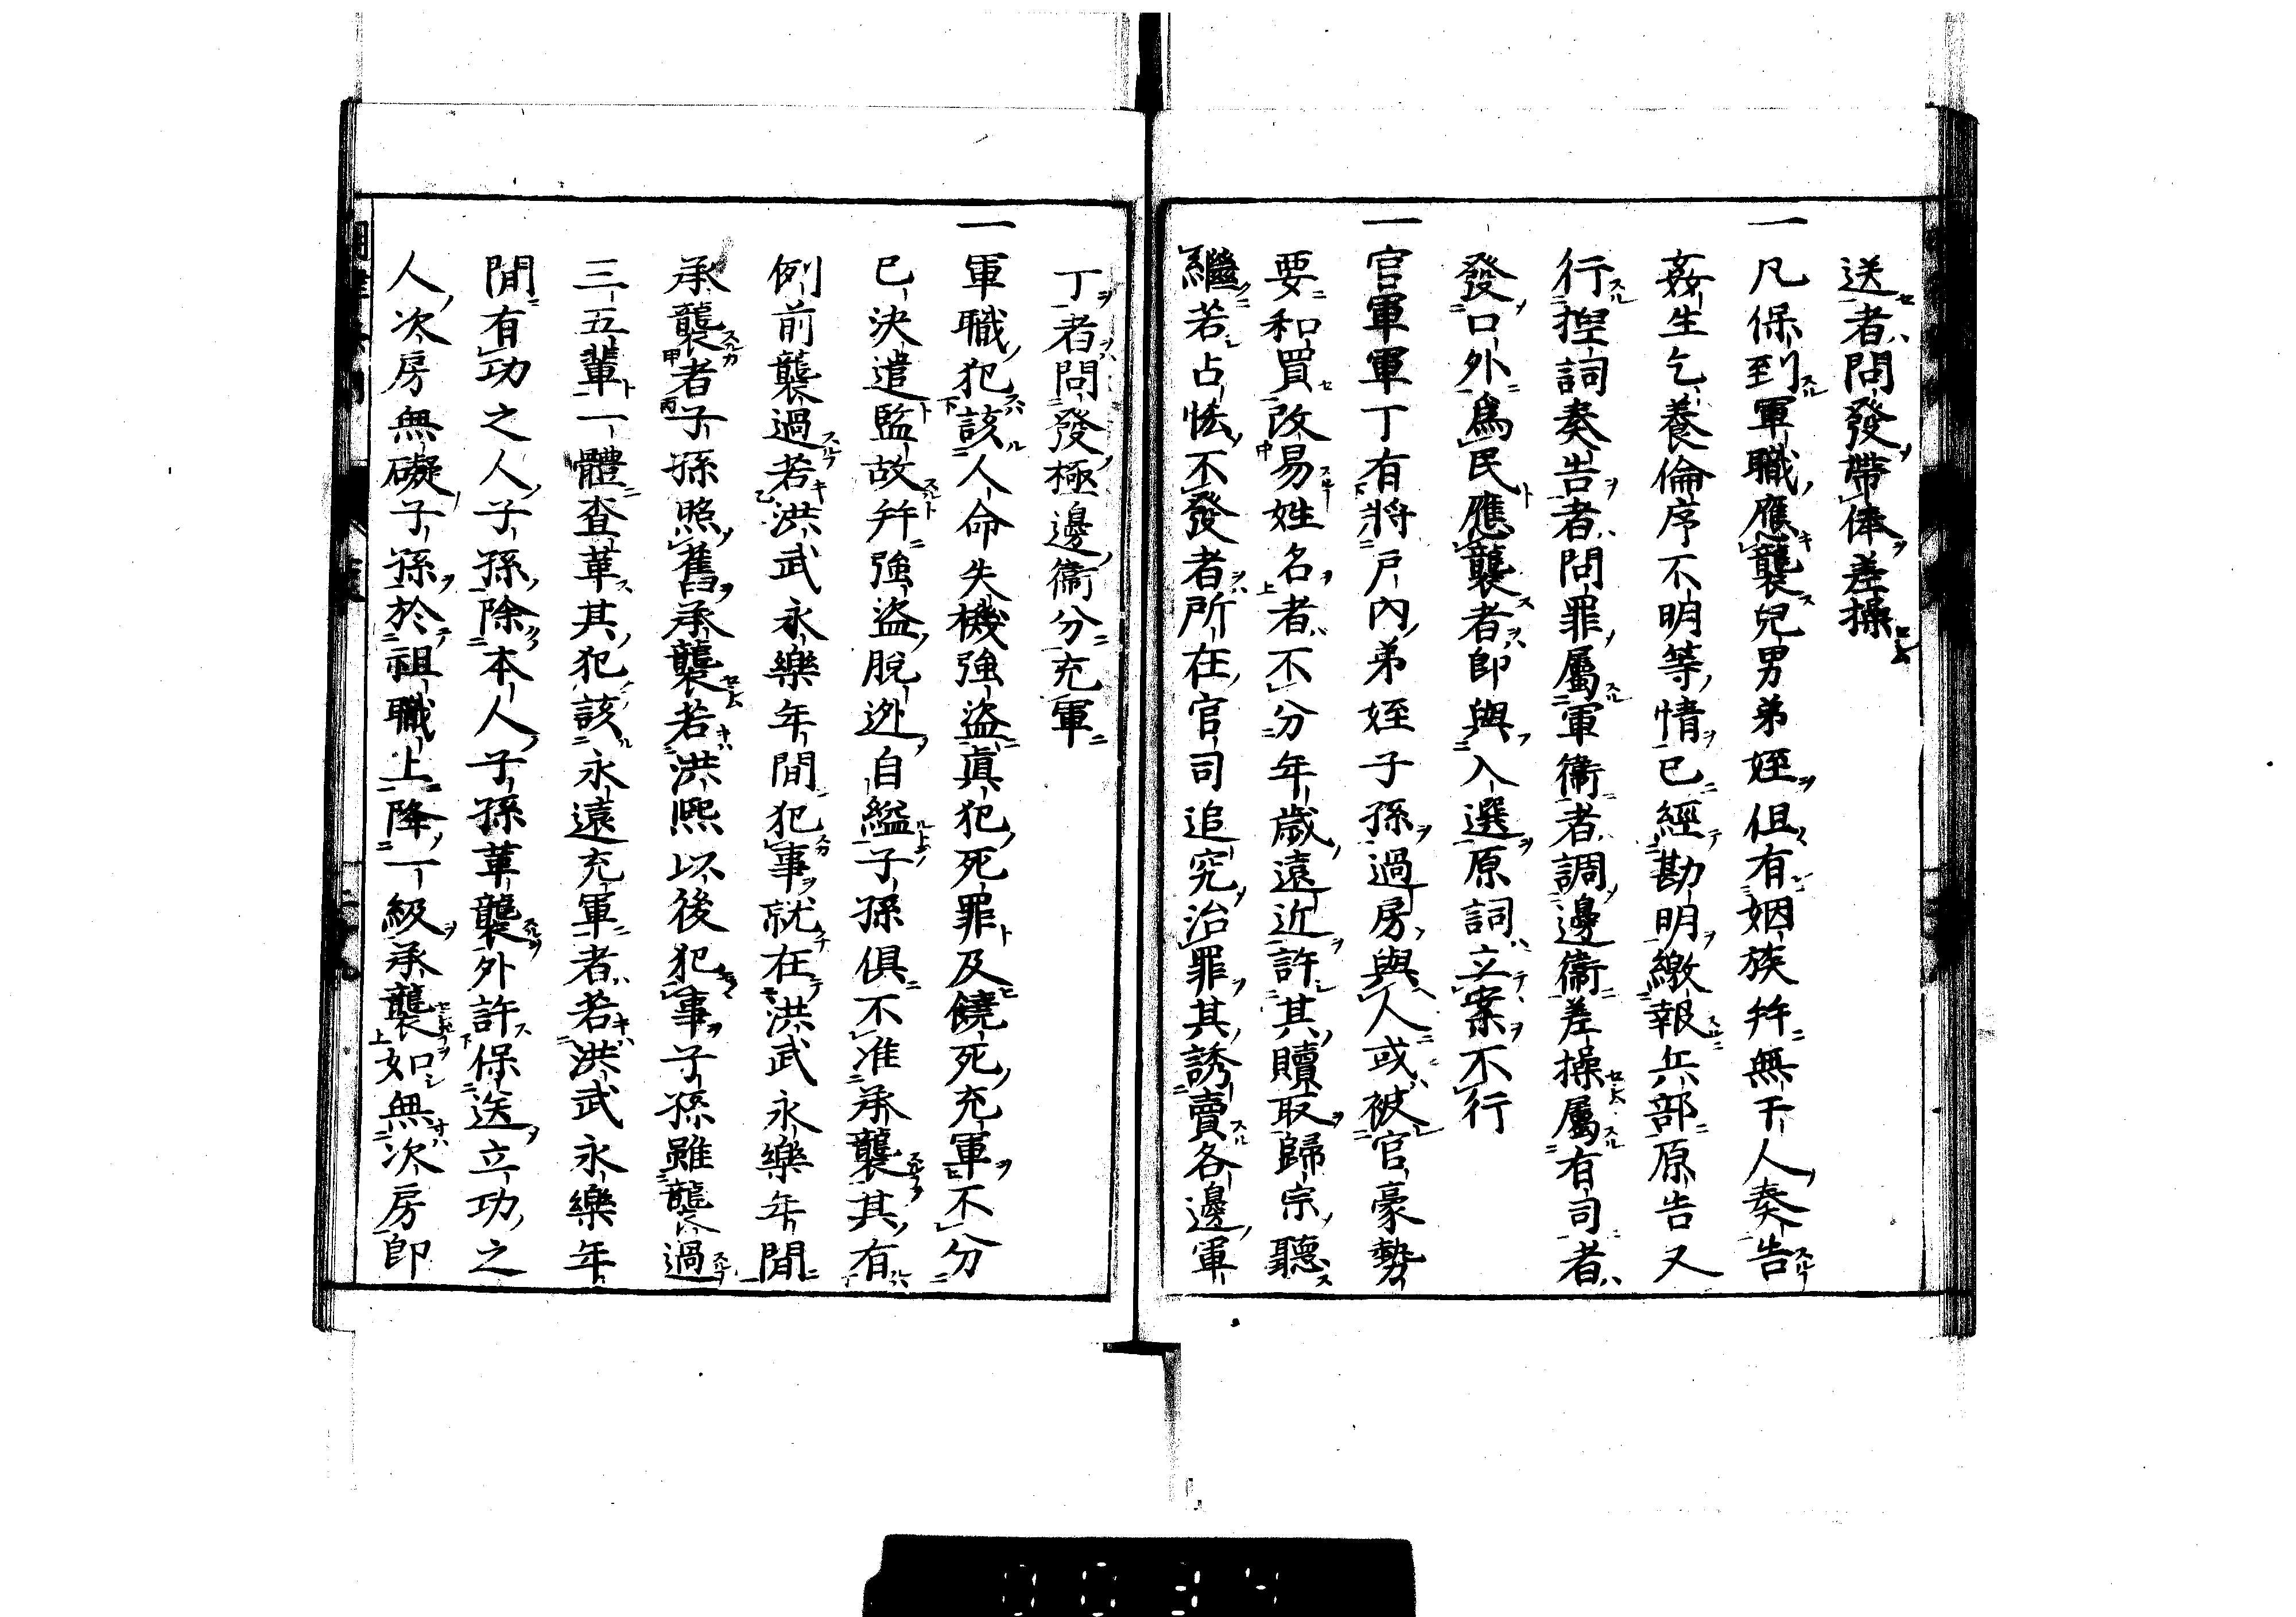 送者問發帶俸差操
一凡保到軍職應襲兒男弟姪但有姻族幷無干人奏告
姦生乞養倫序不明等情已經勘明繳報兵部原告又
行揑詞奏告者問罪屬軍衞者調邊衞差操屬有司者
發口外爲民應襲者卽與入選原詞立案不行
一官軍軍丁有將戸內弟姪子孫過房與人或被官豪勢
要和買改易姓名者不分年歲遠近許其贖取歸宗聽
繼若占悋不發者所在官司追究治罪其誘賣各邊軍
丁者問發極邊衞分充軍
一軍職犯該人命失機強盜眞犯死罪及饒死充軍不分
已決遣監故幷強盜脫逃自縊子孫俱不准承襲其有
例前襲過若洪武永樂年間犯事就在洪武永樂年間
承襲者子孫照舊承襲若洪熙以後犯事子孫雖襲過
三五輩一體査革其犯該永遠充軍者若洪武永樂年
間有功之人子孫除本人子孫革襲外許保送立功之
人次房無礙子孫於祖職上降一級承襲如無次房卽
0034